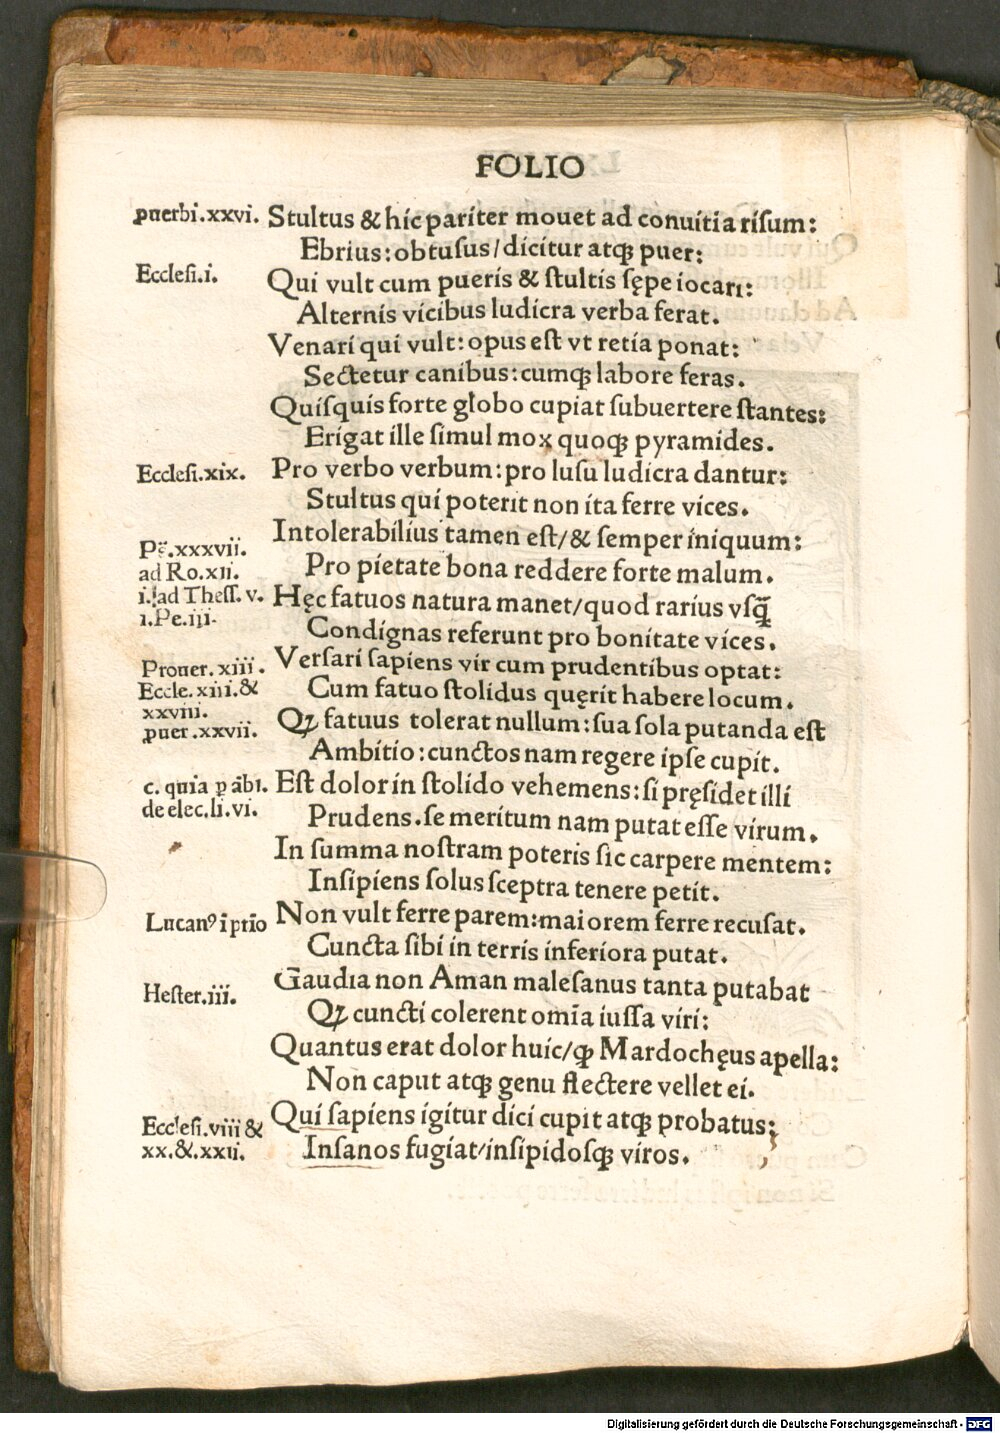 FOLIO
ꝓuerbi.xxvi. Stultus & hic pariter mouet ad conuitia risum:
Ebrius: obtusus/dicitur atqꝫ puer:
Ecclesi.i. Qui vult cum pueris & stultis sępe iocari:
Alternis vicibus ludicra verba ferat.
Venari qui vult: opus est vt retia ponat:
Sectetur canibus: cumqꝫ labore feras.
Quisquis forte globo cupiat subuertere stantes:
Erigat ille simul mox quoqꝫ pyramides.
Ecclesi.xix. Pro verbo verbum: pro lusu ludicra dantur:
Stultus qui poterit non ita ferre vices.
Intolerabilius tamen est/& semper iniquum:
Ps̃.xxxvii.
Pro pietate bona reddere forte malum.
ad Ro.xii.
i. ad Thess. v. Hęc fatuos natura manet/quod rarius vsq̃ꝫ
i.Pe.iij.
Condignas referunt pro bonitate vices.
Prouer. xiii. Versari sapiens vir cum prudentibus optat:
Eccle. xiii. & Cum fatuo stolidus quęrit habere locum.
xxviii.
ꝓuer.xxvii. Qꝫ fatuus tolerat nullum: sua sola putanda est
Ambitio: cunctos nam regere ipse cupit.
c. quia ꝑ ãbi. Est dolor in stolido vehemens: si pręsidet illi
de elec.li.vi. Prudens. se meritum nam putat esse virum.
In summa nostram poteris sic carpere mentem:
Insipiens solus sceptra tenere petit.
Lucanꝰ i prio Non vult ferre parem: maiorem ferre recusat.
Cuncta sibi in terris inferiora putat.
Hester.iii. Gaudia non Aman malesanus tanta putabat
Qꝫ cuncti colerent omĩa iussa viri:
Quantus erat dolor huic/ꝙ Mardochęus apella:
Non caput atqꝫ genu flectere vellet ei.
Ecclesi.viii & Qui sapiens igitur dici cupit atqꝫ probatus:
xx.&.xxii. Insanos fugiat/insipidosqꝫ viros.
Digitalisierung gefördert durch die Deutsche Forschungsgemeinschaft - DFG